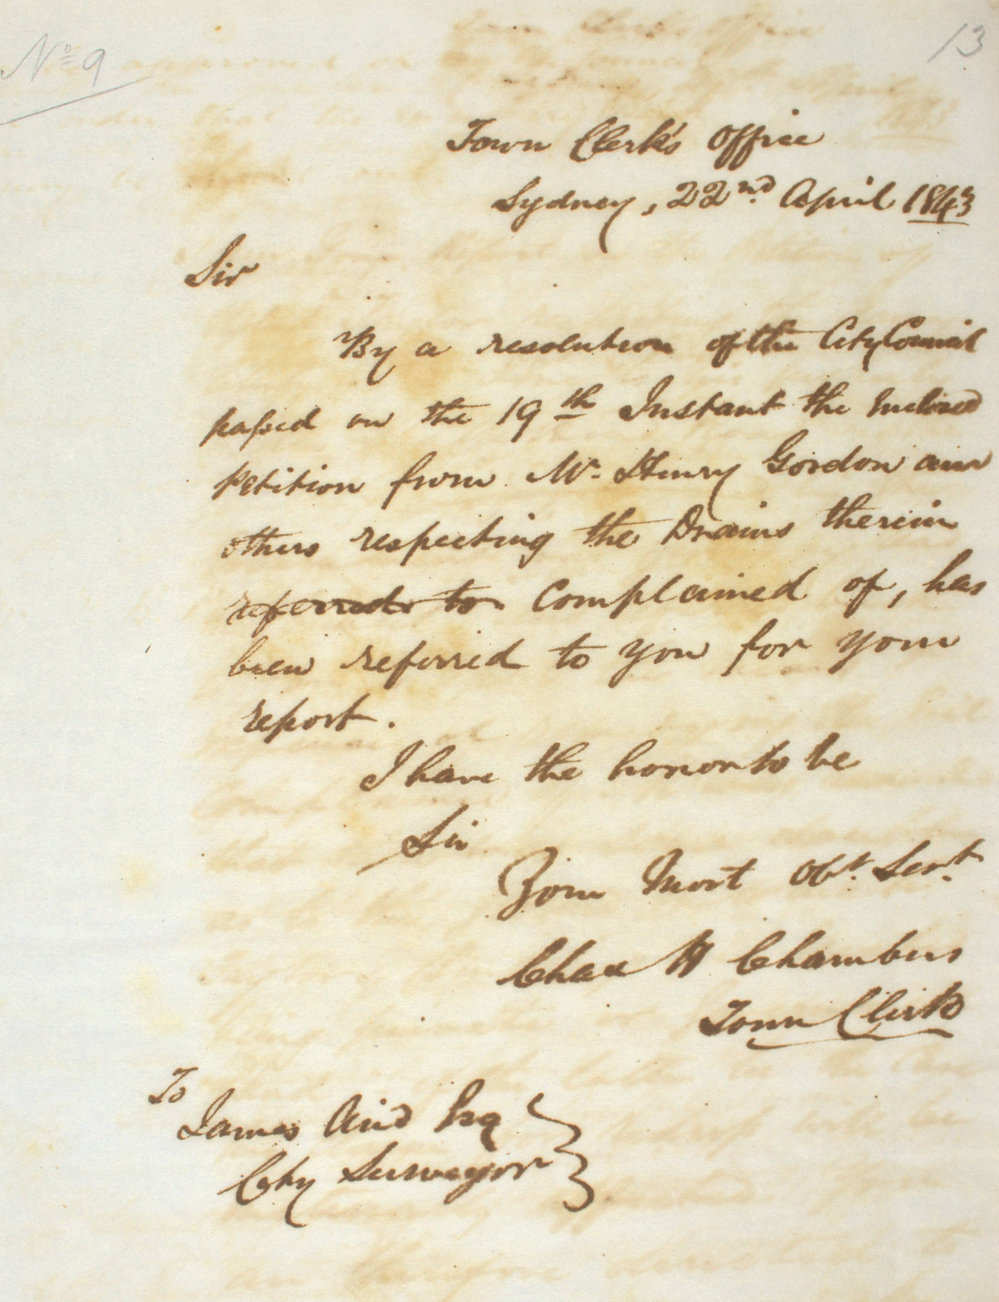 No 9
13
Town Clerk's Office
Sydney, 22nd. April 1843
Sir
By a resolution of the City Council
passed on the 19th Instant the Inclosed
Petition from Mr. Henry Gordon and
others respecting the Drains therein
referred to Complained of, has
been referred to you for your
report.
I have the honor to be
Sir
Your Most Obt. Servt.
Chas H Chambers
Town Clerk
To
James Aird Esq
City Surveyor